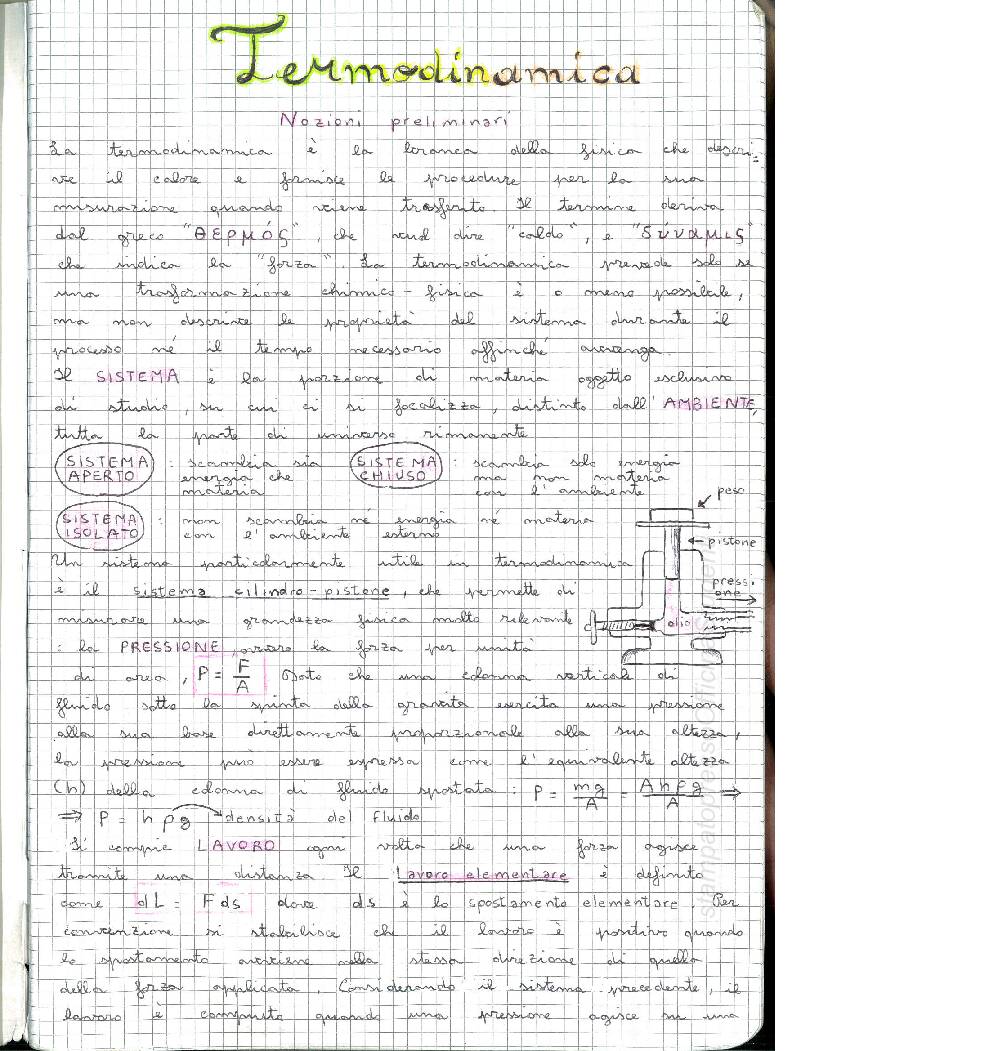 Termodinamica
Nozioni preliminari
La termodinamica è la branca della fisica che descri-
ve il calore e fornisce le procedure per la sua
misurazione quando viene trasferito. Il termine deriva
dal greco "ΘΕΡΜΌΣ", che vuol dire "caldo", e "δύναμις"
che indica la "forza". La termodinamica prevede solo se
una trasformazione chimico-fisica è o meno possibile,
ma non descrive le proprietà del sistema durante il
processo né il tempo necessario affinché avvenga.
Il SISTEMA è la porzione di materia oggetto esclusivo
di studio, su cui ci si focalizza, distinto dall'AMBIENTE,
tutta la parte di universo rimanente
SISTEMA APERTO : scambia sia energia che materia
SISTEMA CHIUSO : scambia solo energia ma non materia con l'ambiente
SISTEMA ISOLATO : non scambia né energia né materia con l'ambiente esterno
peso
pistone
pressione
olio
Un sistema particolarmente utile in termodinamica
è il sistema cilindro-pistone, che permette di
misurare una grandezza fisica molto rilevante
: la PRESSIONE, ovvero la forza per unità
di area, P = F/A Dato che una colonna verticale di
fluido sotto la spinta della gravità esercita una pressione
alla sua base direttamente proporzionale alla sua altezza,
la pressione può essere espressa come l'equivalente altezza
(h) della colonna di fluido spostata : P = mg/A = Ahρg/A ⇒
⇒ P = hρg → densità del fluido
Si compie LAVORO ogni volta che una forza agisce
tramite una distanza. Il Lavoro elementare è definito
come dL = Fds dove ds è lo spostamento elementare. Per
convenzione si stabilisce che il lavoro è positivo quando
lo spostamento avviene nella stessa direzione di quella
della forza applicata. Considerando il sistema precedente, il
lavoro è compiuto quando una pressione agisce su una